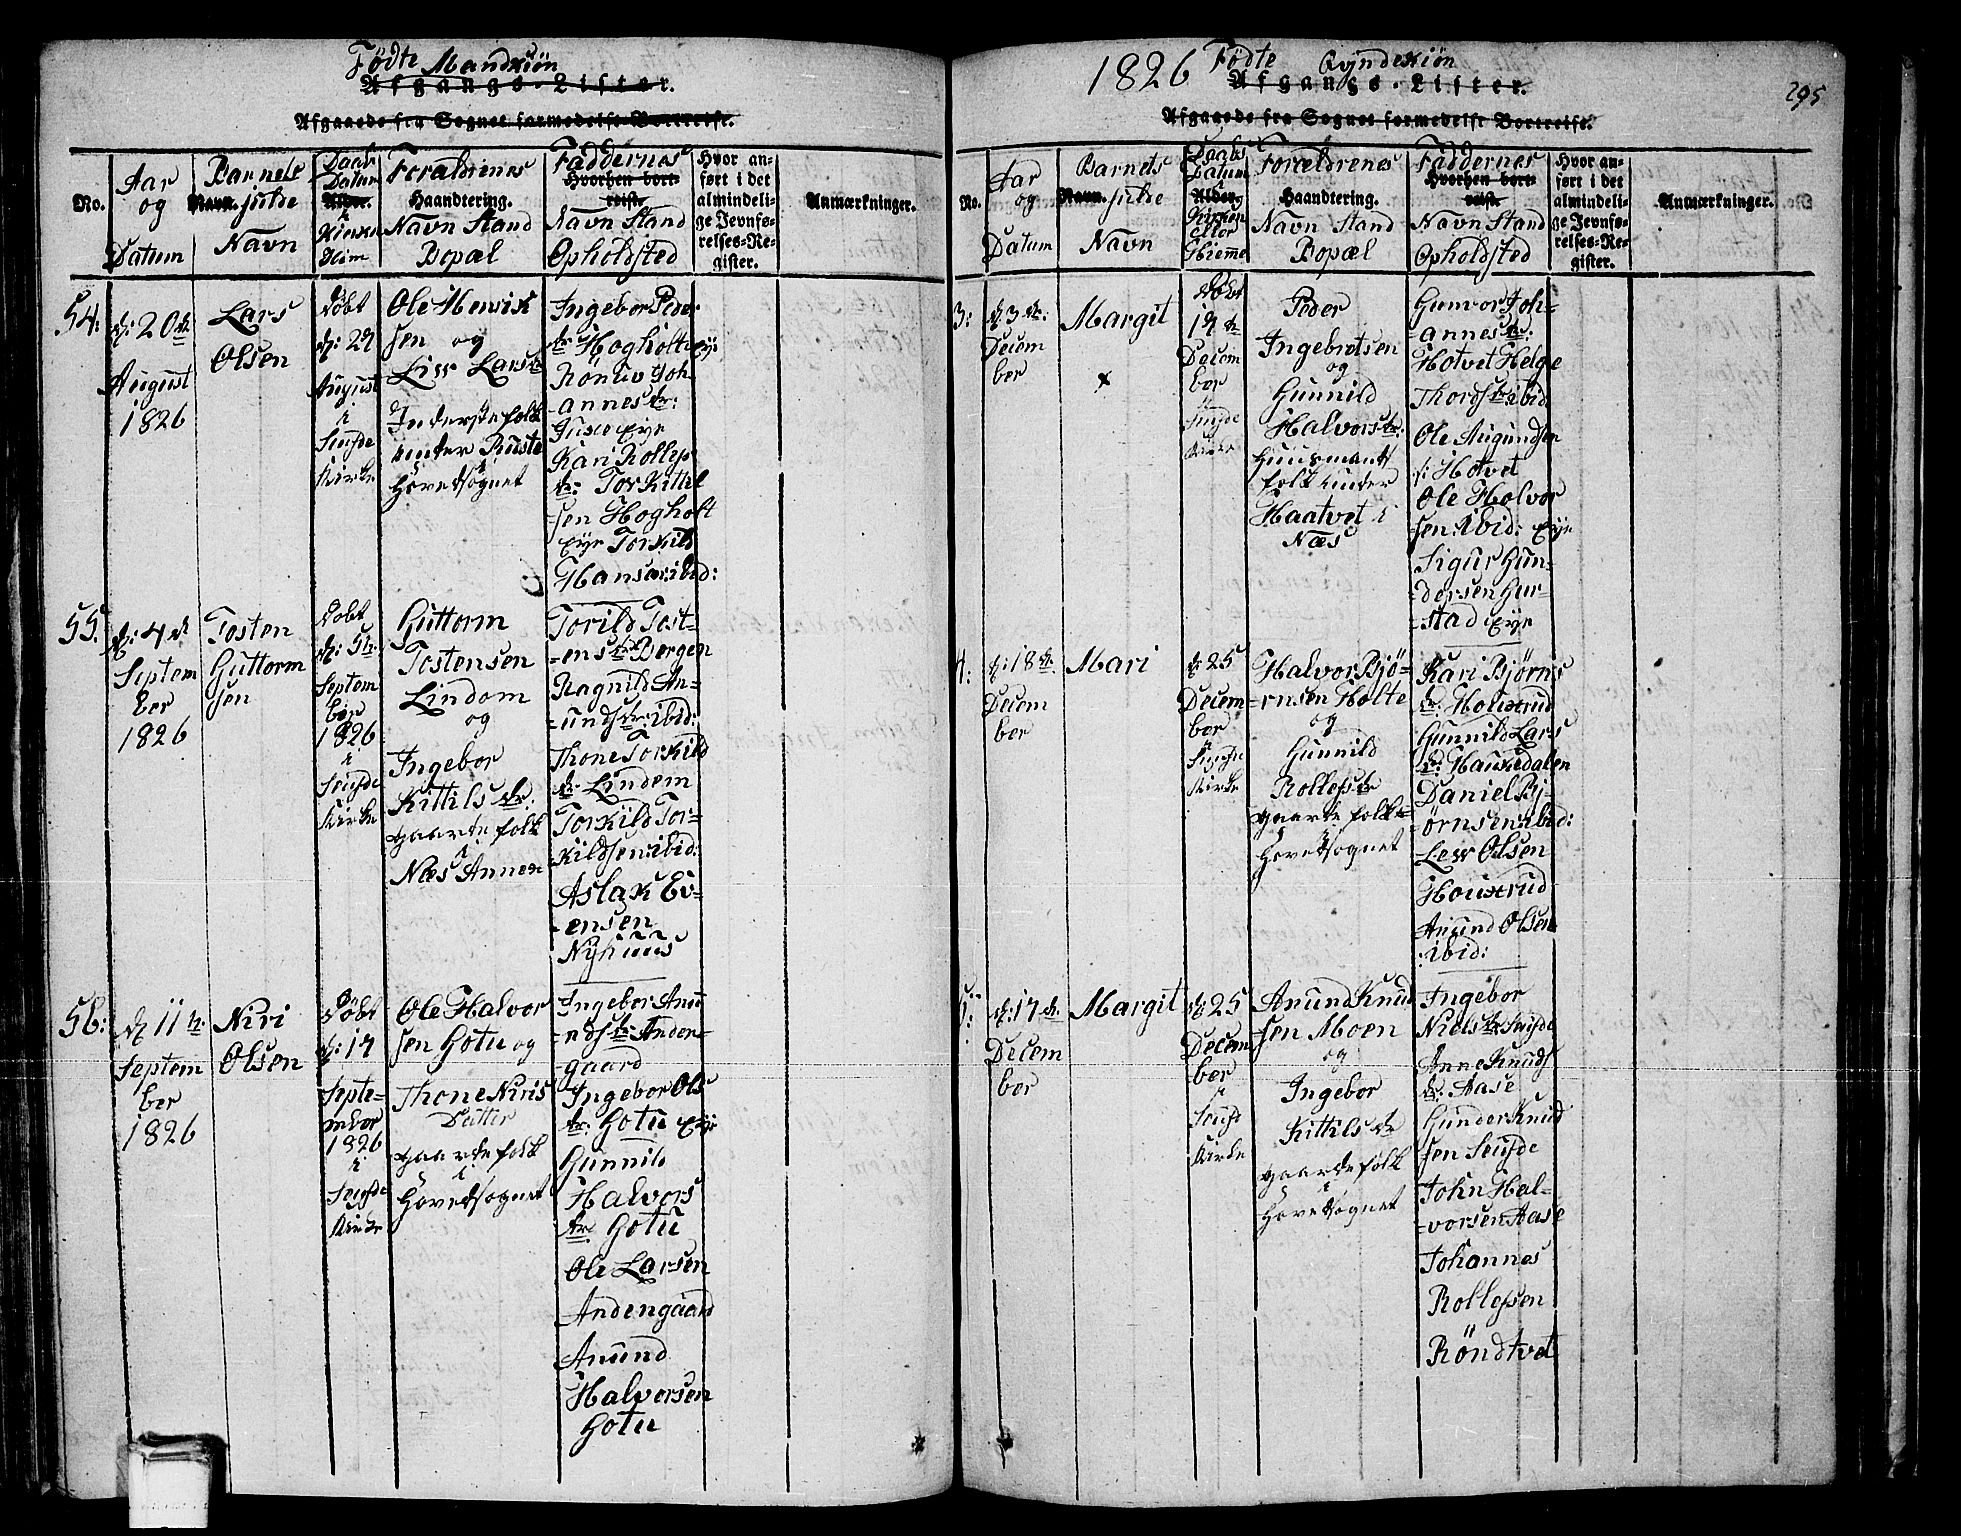 Fødte Mandkiön
Afgangs-Lister.
Afgaaede fra Sognet formedelst Bortreise.
No.
Aar
og
Datum
Barnets
Navn. fulde
Navn
Daabs
Datum
Alder.
i
Kirken
Forældrenes
Haandtering.
Navn Stand
Bopæl
Faddernes
Hvorhen bort-
reist.
Navn Stand
Opholdsted
Hvor an-
ført i det
almindeli-
ge Jevnfø-
relses-Re-
gister.
Anmærkninger.
54:
d: 20de
August
1826
Lars
Olsen
Döbt
d: 27
August
i
Seufde
Kirke
Ole Henrik
sen og
Liv Larsdr
Inderstefolk
under Ruste
i
Hovedsognet
Ingebor Peder
dr: Hogholt Eye
Rönuv Joh-
annesdr:
Eye
Kari Rolleps
dr: Torkittel
sen Hogholt
Eye Torkild
Hansen ibid:
55.
d: 4de
Septem
ber
1826
Tosten
Guttorm
sen
Döbt
d: 5te
Septem
ber
1826
i
Seufde
Kirke
Guttorm
Tostensen
Lindom
og
Ingebor
Kittilsdr:
Gaardefolk
i
Næs Annex
Torild Tost-
=ensdr Bergen
Ragnild An-
=undsdr: ibid:
Thone Torkild
dr: Lindem
Torkild Tor=
kildsen: ibid:
Aslak Ev-
=ensen
Nyhuus
56:
d: 11te:
Septem
ber
1826
Niri
Olsen
Döbt
d: 17
Septe=
mber
1826
i
Seufde
Kirke
Ole Halvor
sen Gotu og
Thone Niris
Datter
Gaardefolk
i
Hovedsognet
Ingebor Anu
=ndsdr: Anden-
gaard
Ingebor Ols
dr: Gotu Eye
Gunnild
Halvors
dr: Gotu
Ole Larsen
Andengaard
Anund
Halvorsen
Gotu
1826 Fødte Qvindekiön
295
Afgangs-Lister.
Afgaaede fra Sognet formedelst Bortreise.
No.
Aar
og
Datum
Barnets
Navn. fulde
Navn
Daabs
Datum
Alder
Kirken
eller
Hiemme
Forældrenes
Haandtering.
Navn Stand
Bopæl
Faddernes
Hvorhen bort-
reist.
Navn Stand
Opholdsted
Hvor an-
ført i det
almindeli-
ge Jevnfø-
relses-Re-
gister.
Anmærkninger.
3:
d: 3de:
Decem
ber
Margit
x
Döbt
17de
Decem
ber
i
Seufde
Kirke
Peder
Ingebretsen
og
Gunnild
Halvorsdr:
Huusmands
folk under
Haatvet i
Næs
Gunvor Joh-
=annesdr:
Hotvet Helge
Thordsdr ibid
Ole Augundsen
: Hotvet
Ole Halvor
sen: ibid: Eye
Sigur Gun-
dersen Gur-
=stad Eye
4:
d: 18de:
Decem
ber
Mari
d: 25
Decem
ber
i
Seufde
Kirke
Halvor Bjö=
=rnsen Holte
og
Gunnild
Rollepsdr
Gaardefolk
i
Hovedsognet
Kari Bjørns
dr: Houxrud
Gunnild Lars
dr: Hauxdalen
Daniel Bj-
=ørnsen: ibid:
Lew Olsen
Houxrud
Anund Olsen
: ibid:
5:
d: 17de.
Decem
ber
Margit
d: 25
Decem
ber
i
Seufde
Kirke
Anund Knud
sen Moen
og
Ingebor
Kittilsdr
Gaardefolk
i
Hovedsognet
Ingebor
Nielsdr Seufde
Anne Knuds
dr: Aase
Gunder Knud
sen Seufde
John Hal-
=vorsen Aase
Johannes
Rollepsen
Röndtvet